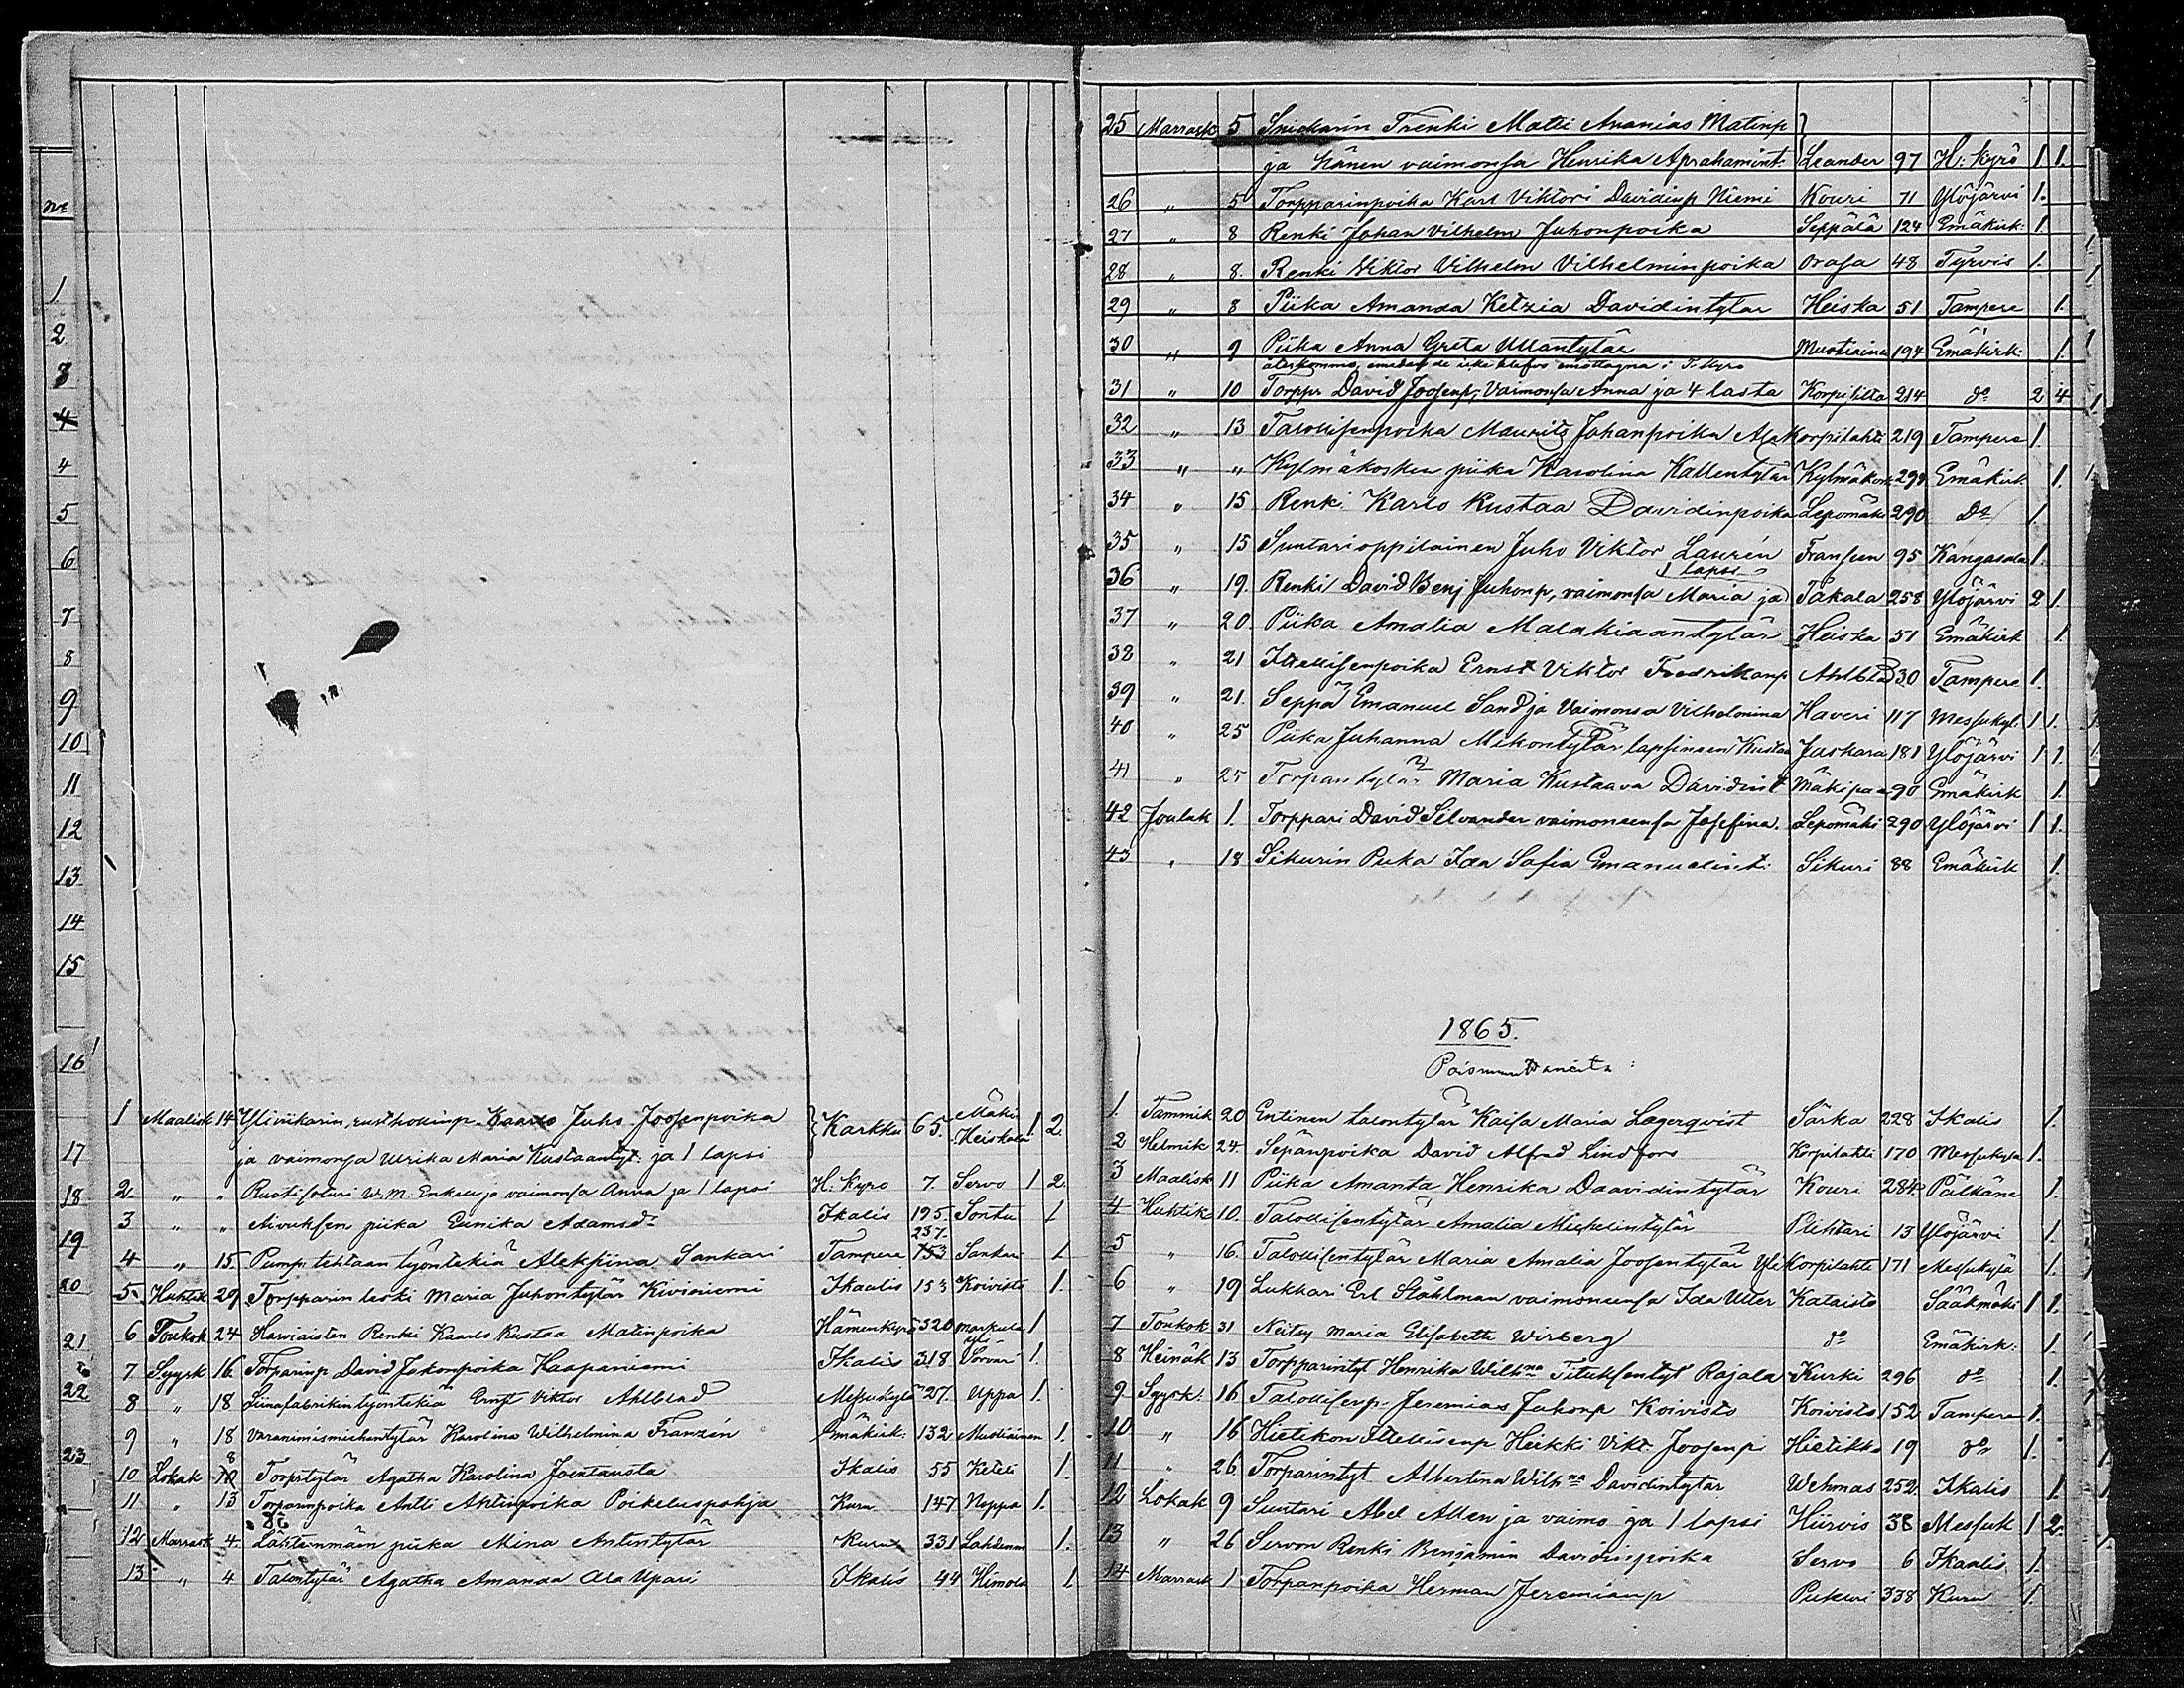 No
1
2
3
4
4
5
6
7
8
9
10
11
12
13
14
15
16
17
18
19
20
21
22
23
1 Maalisk 14 Ylivikarin, rusthollinp. Kaarlo Juho Joosenpoika } Karkku 65. Mäki Heiskala 1 2
ja vaimonsa Ulrika Maria Kustaantyt: ja 1 lapsi
2. " " Ruotisoturi W. M. Enkell ja vaimonsa Anna ja 1 lapsi H. Kyro 7. Servo 1 2
3 " " piika Eunika Adamsdr Ikalis 195 Sontu 1
4 " 15 Pump. tehtaan työntekiä Aleksina Sankari Tampere 237. 153 Sankari 1
5. Huhtik 29 Torpparin leski Maria Juhontytär Kiviniemi Ikaalis 153 Koivisto 1.
6 Toukok 24 Harviaisten Renki Kaarlo Kustaa Matinpoika Hämeenkyrö 320 Markula 1
7 Syysk 16. Torparinp David Jakonpoika Haapaniemi Ikalis 318 Yli Sorvari 1.
8 " 18 Liinafabrikin työntekiä Ernst Viktor Ahlblad Messukylä 27. Uppa 1.
9 " 18 Varanimismiehentytär Karolina Wilhelmina Franzén Emäkirk: 132 Mustiainen 1.
10 Lokak 8 Torpantytär Agatha Karolina Joentausta Ikalis 55 Keteli 1.
11 " 13 Torparinpoika Antti Anttinpoika Poikeluspohja Kuru 147 Noppa 1.
12 Marrask 4. Lähteenmäen piika Mina Antintytär Kuru 331 Lahdenm 1.
13 " 4 Talontytär Agatha Amanda Ala Upari Ikalis 44 Himola 1
25 Marrask 5 Snickarin Trenki Matti Ananias Matinp }
ja hänen vaimonsa Henrika Aprahamint. Leander 97 H: Kyrö 1 1.
26 " 5 Torpparinpoika Karl Viktori Davidinp Niemi Kouri 71 Ylöjärvi 1.
27 " 8 Renki Johan Vilhelm Juhonpoika Seppälä 124 Emäkirk: 1
28 " 8. Renki Viktor Vilhelm Vilhelminpoika Orasa 48 Tyrvis 1.
29 " 8 Piika Amanda Ketzia Davidintytar Heiska 51 Tampere 1.
30 " 9 Piika Anna Greta Ullantytär Mustiaine 194 Emäkirk: 1.
återkommo, emedan de icke blefvo emottagna i T. Kyro
31 " 10 Torppr David Joosenp, Vaimonsa Anna ja 4 lasta Korpilahti 214 do 2 4
32 " 13 Talollisenpoika Maurits Johanpoika Ala Korpilahti 219 Tampere 1.
33 " " Kylmäkosken piika Karolina Kallentytär Kylmäkos 299 Emäkirk 1.
34 " 15 Renki Karlo Kustaa Davidinpoika Lepomäki 290 Do 1.
35 " 15 Suutarioppilainen Juho Viktor Laurén Franssen 95 Kangasala 1.
1 lapsi
36 " 19. Renki David Benj Juhonp, vaimonsa Maria ja Takala 258 Ylöjärvi 2 1.
37 " 20. Piika Amalia Malakiaantytär Heiska 51 Emäkirk 1.
38 " 21 Itellisenpoika Ernst Viktor Fredrikanp Ahlblad 30 Tampere 1.
39 " 21. Seppä Emanuel Sand ja Vaimonsa Vilhelmina Haveri 117 Messukyl. 1 1.
40 " 25 Piika Juhanna Mikontytär lapsineen Kustaa Juskara 181 Ylöjärvi 1 1.
41 " 25 Torpantytär Maria Kustaava Davidint Mäkipaa 90 Emäkirk 1.
42 Joulak 1. Torppari David Silvander vaimonensa Josefina. Lepomäki 290 Ylöjärvi 1 1.
43 " 18 Sikurin Piika Ida Sofia Emanuelint: Sikuri 88 Emäkirk 1.
1865.
Poismuuttaneita:
1. Tammik 20 Entinen talontytär Kaisa Maria Lagerqvist Särka 228 Ikalis 1.
2 Helmik 24. Sepänpoika David Alfred Lindfors Korpilahti 170 Messukyla 1.
3 Maalisk 11 Piika Amanta Henrika Daavidintytär Kouri 284 Pälkäne 1.
4 Huhtik 10. Talollisentytär Amalia Mikkelintytär Plihtari 13 Ylöjärvi 1.
5 " 16. Talollisentytär Maria Amalia Joosentytär Yli Korpilahti 171 Messukylä 1.
6 " 19 Lukkari Erl Ståhlman vaimoneensa Ida Ulter Kataisto Sääkmäki 1 1.
7 Toukok 31 Neitsy Maria Elisabetti Wirberg do Emäkirk: 1.
8 Heinäk 13 Torpparintyt Henrika Wilhna Tituksentyt Rajala Kurki 296 do 1.
9 Syysk. 16 Talollisenp. Jeremias Juhonp Koivisto Koivisto 152 Tampere 1.
10 " 16 Hietikon Itellisenp Heikki Vikt. Joosenp Hietikko 19 do 1.
11 " 26 Torparintyt Albertina Wilhna Davidintytar Wehmas 252. Ikalis 1.
12 Lokak 9 Suutari Abel Allen ja vaimo ja 1 lapsi Hiirvis 38 Messuk 1 2.
13 " 26 Servon Renki Benjamin Davidinpoika Servo 6 Ikaalis 1.
14 Marrask 1 Torpanpoika Herman Jeremianp Piikuri 338 Kuru 1.